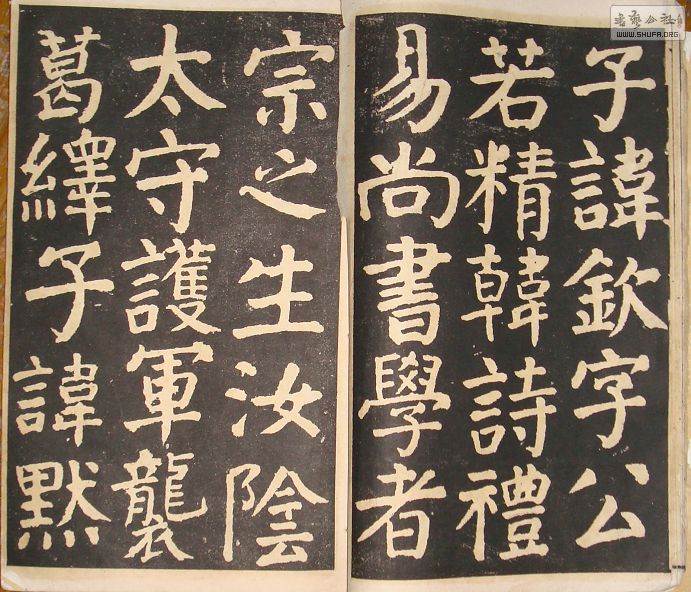 子諱欽字公
若精韓詩禮
易尚書學者
宗之生汝陰
太守護軍襲
葛繹子諱默
书艺公社
WWW.SHUFA.ORG